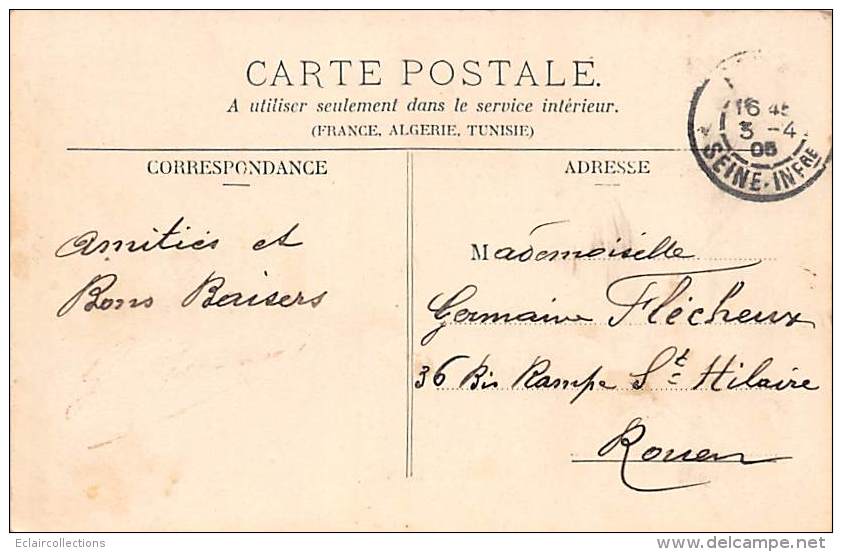 CARTE POSTALE.
A utiliser seulement dans le service intérieur.
(FRANCE, ALGERIE, TUNISIE)
CORRESPONDANCE
ADRESSE
16 45
3 -4
05
SEINE-INFRE
Amitiés et
Bons Baisers
Mademoiselle
Germaine Flécheux
36 Bis Rampe St Hilaire
Rouen
Eclaircollections
www.delcampe.net